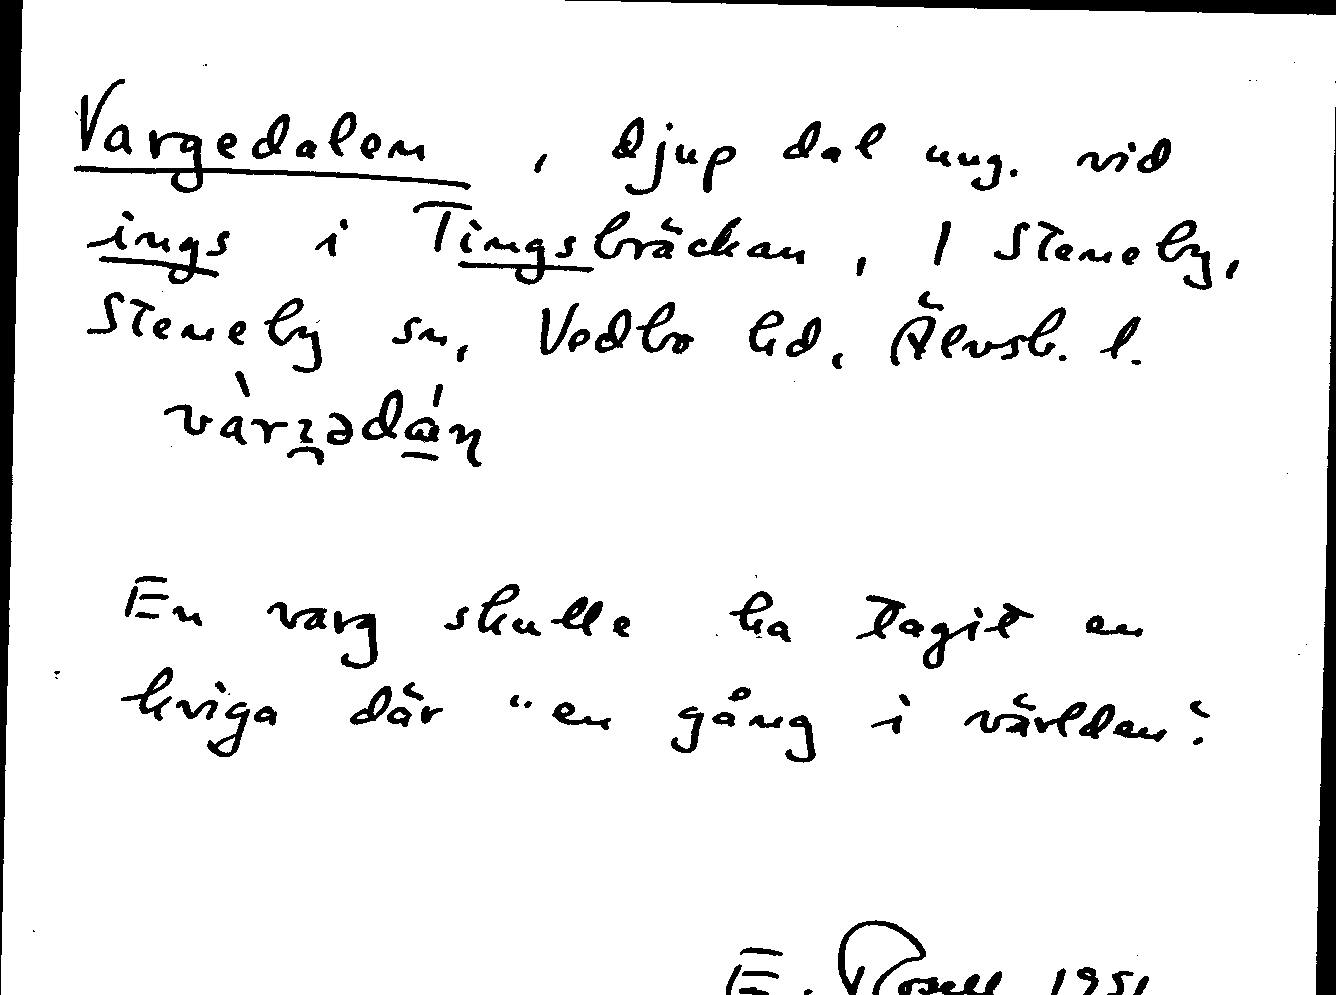 Vargedalen, djup dal ung. vid
ings i Tingsbräckan, 1 Steneby,
Steneby sn, Vedbo hd, Älvsb. l.
En varg skulle ha tagit en
kviga där "en gång i världen".
E. Rosell 1951